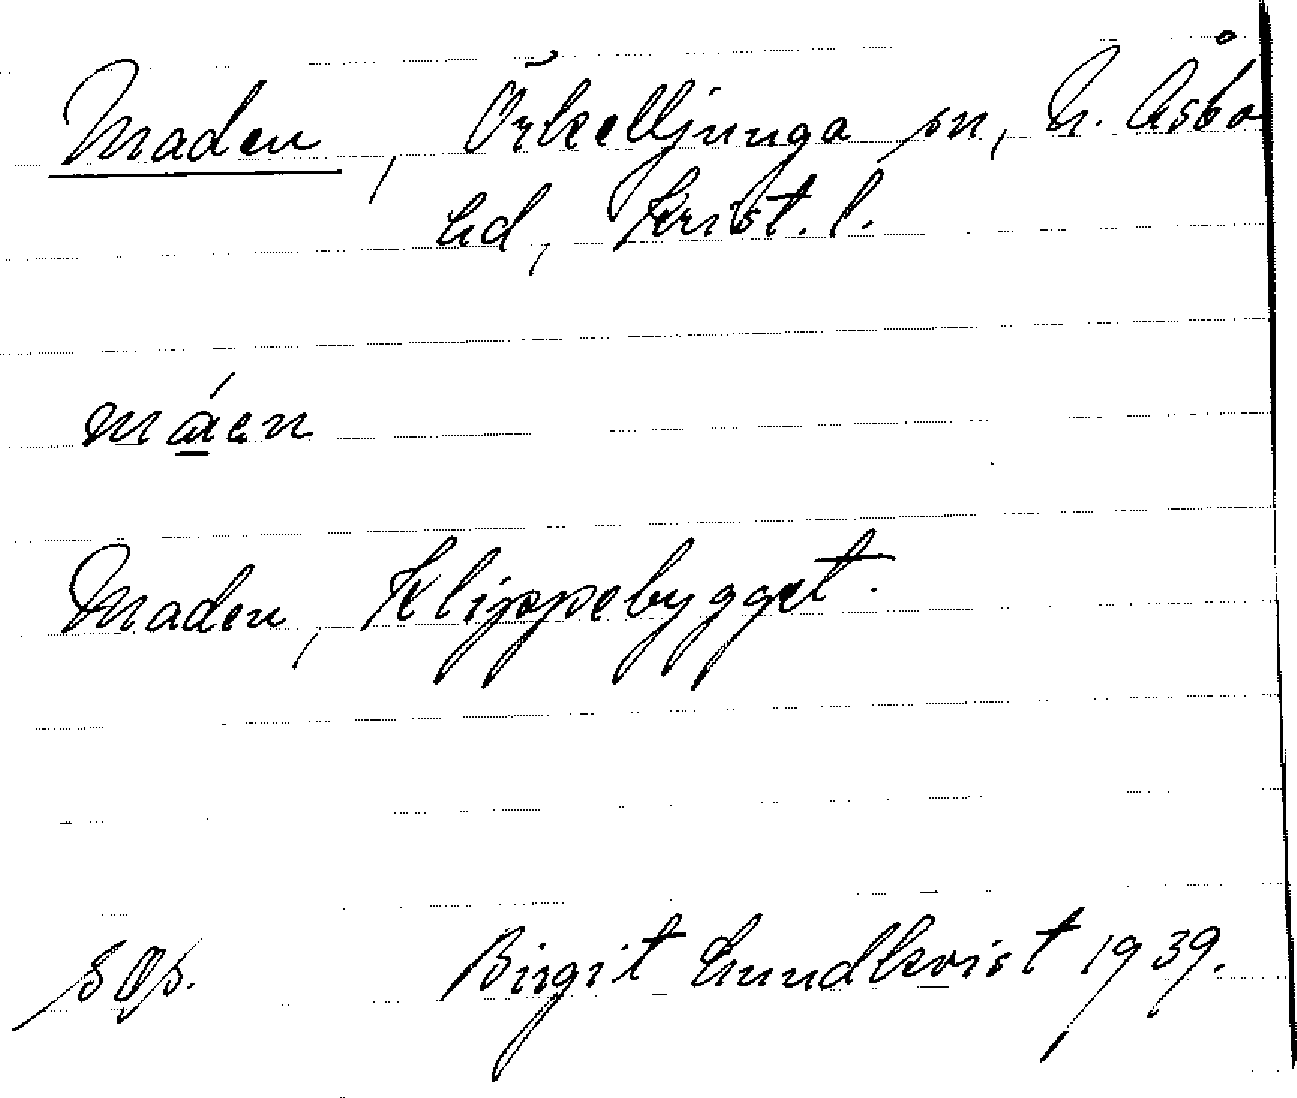 Maden, Örkelljunga sn, N. Åsbo
hd, Krist. l.
máen
Maden, Klippebygget.
Birgit Lundkvist 1939.